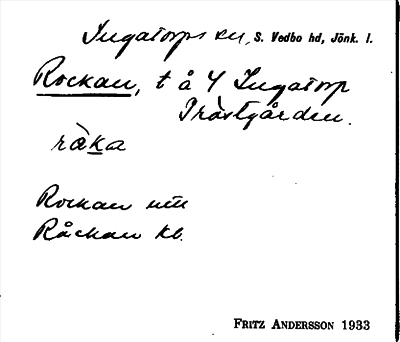 Ingatorps sn, S. Vedbo hd, Jönk. l.
Rockan, t å 4 Ingatorp
Prästgården.
ràka
Rockan
Råckan kb.
FRITZ ANDERSSON 1933